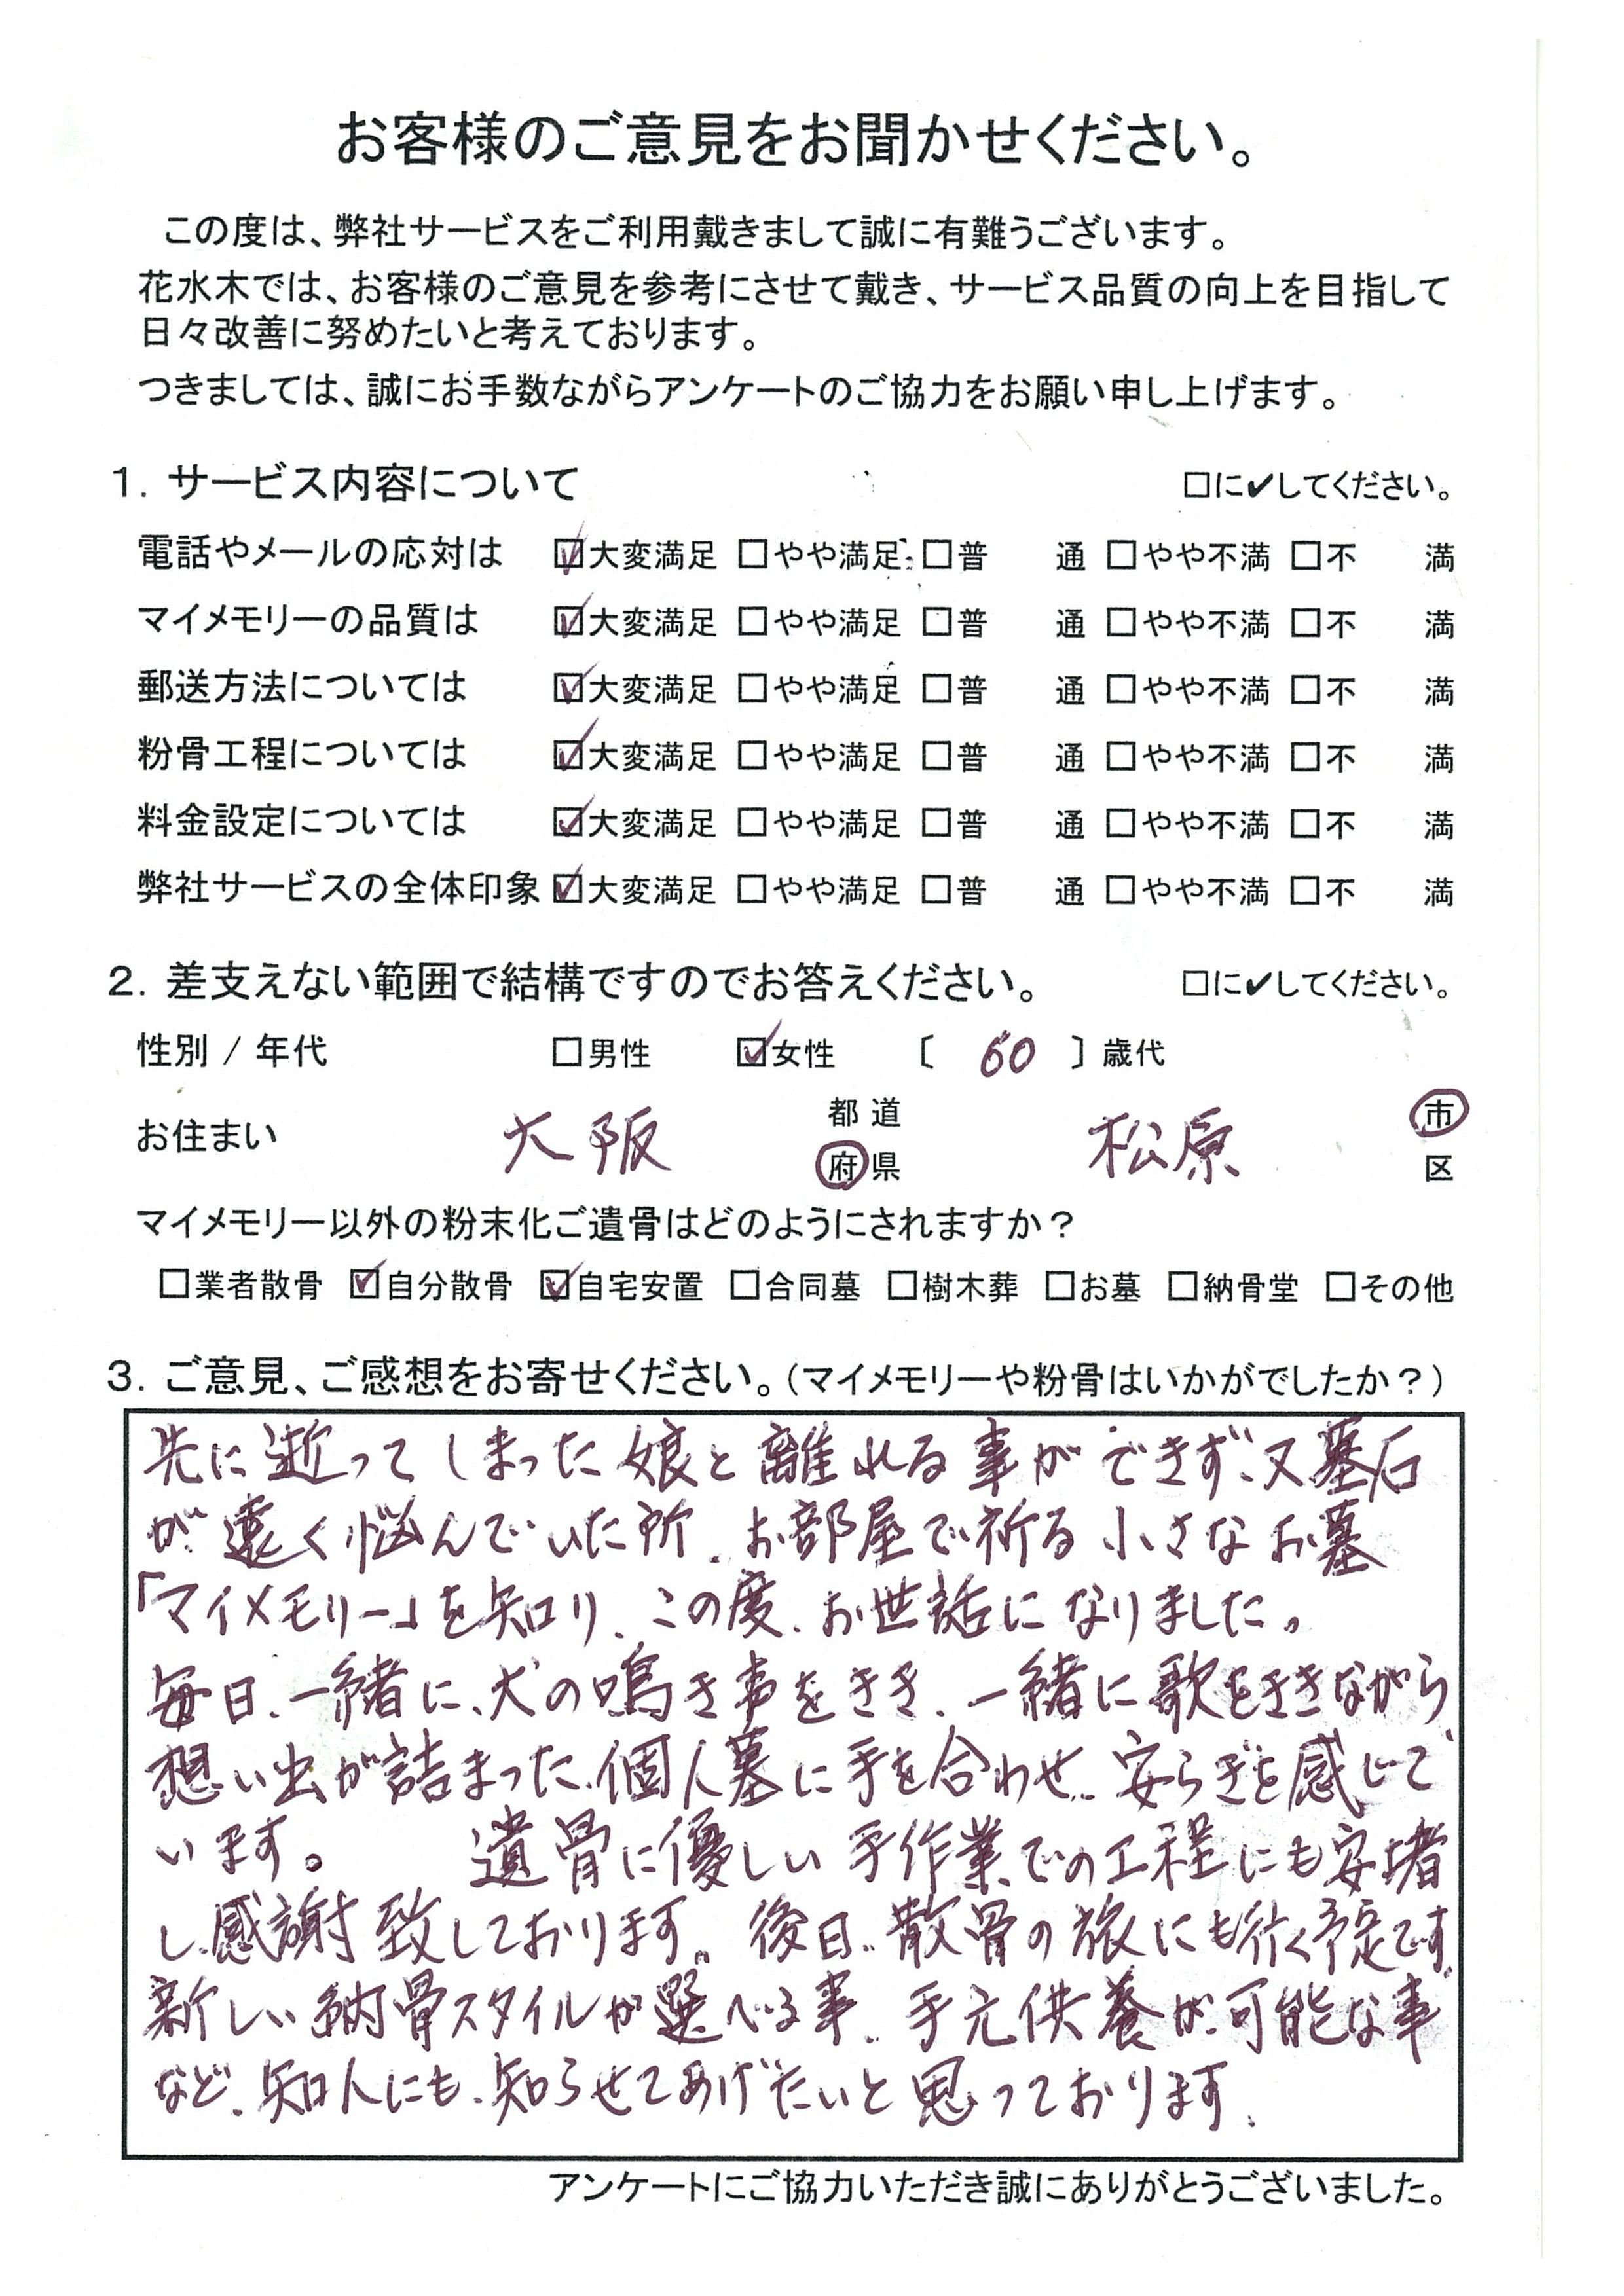 お客様のご意見をお聞かせください。
この度は、弊社サービスをご利用戴きまして誠に有難うございます。
花水木では、お客様のご意見を参考にさせて戴き、サービス品質の向上を目指して
日々改善に努めたいと考えております。
つきましては、誠にお手数ながらアンケートのご協力をお願い申し上げます。
1. サービス内容について □に✔してください。
電話やメールの応対は ☑大変満足 □やや満足 □普 通 □やや不満 □不 満
マイメモリーの品質は ☑大変満足 □やや満足 □普 通 □やや不満 □不 満
郵送方法については ☑大変満足 □やや満足 □普 通 □やや不満 □不 満
粉骨工程については ☑大変満足 □やや満足 □普 通 □やや不満 □不 満
料金設定については ☑大変満足 □やや満足 □普 通 □やや不満 □不 満
弊社サービスの全体印象 ☑大変満足 □やや満足 □普 通 □やや不満 □不 満
2. 差支えない範囲で結構ですのでお答えください。 □に✔してください。
性別 / 年代 □男性 ☑女性 〔 60 〕歳代
お住まい 大阪 都道府県 松原 市区
マイメモリー以外の粉末化ご遺骨はどのようにされますか？
□業者散骨 ☑自分散骨 ☑自宅安置 □合同墓 □樹木葬 □お墓 □納骨堂 □その他
3. ご意見、ご感想をお寄せください。（マイメモリーや粉骨はいかがでしたか？）
先に逝ってしまった娘と離れる事ができず、又墓石
が遠く悩んでいた所、お部屋で祈る小さなお墓
「マイメモリー」を知り、この度、お世話になりました。
毎日、一緒に、犬の鳴き声をきき、一緒に歌をききながら
想い出が詰まった、個人墓に手を合わせ、安らぎを感じて
います。 遺骨に優しい手作業での工程にも安堵
し、感謝致しております。後日、散骨の旅にも行く予定です。
新しい納骨スタイルが選べる事、手元供養が可能な事
など、知人にも、知らせてあげたいと思っております。
アンケートにご協力いただき誠にありがとうございました。